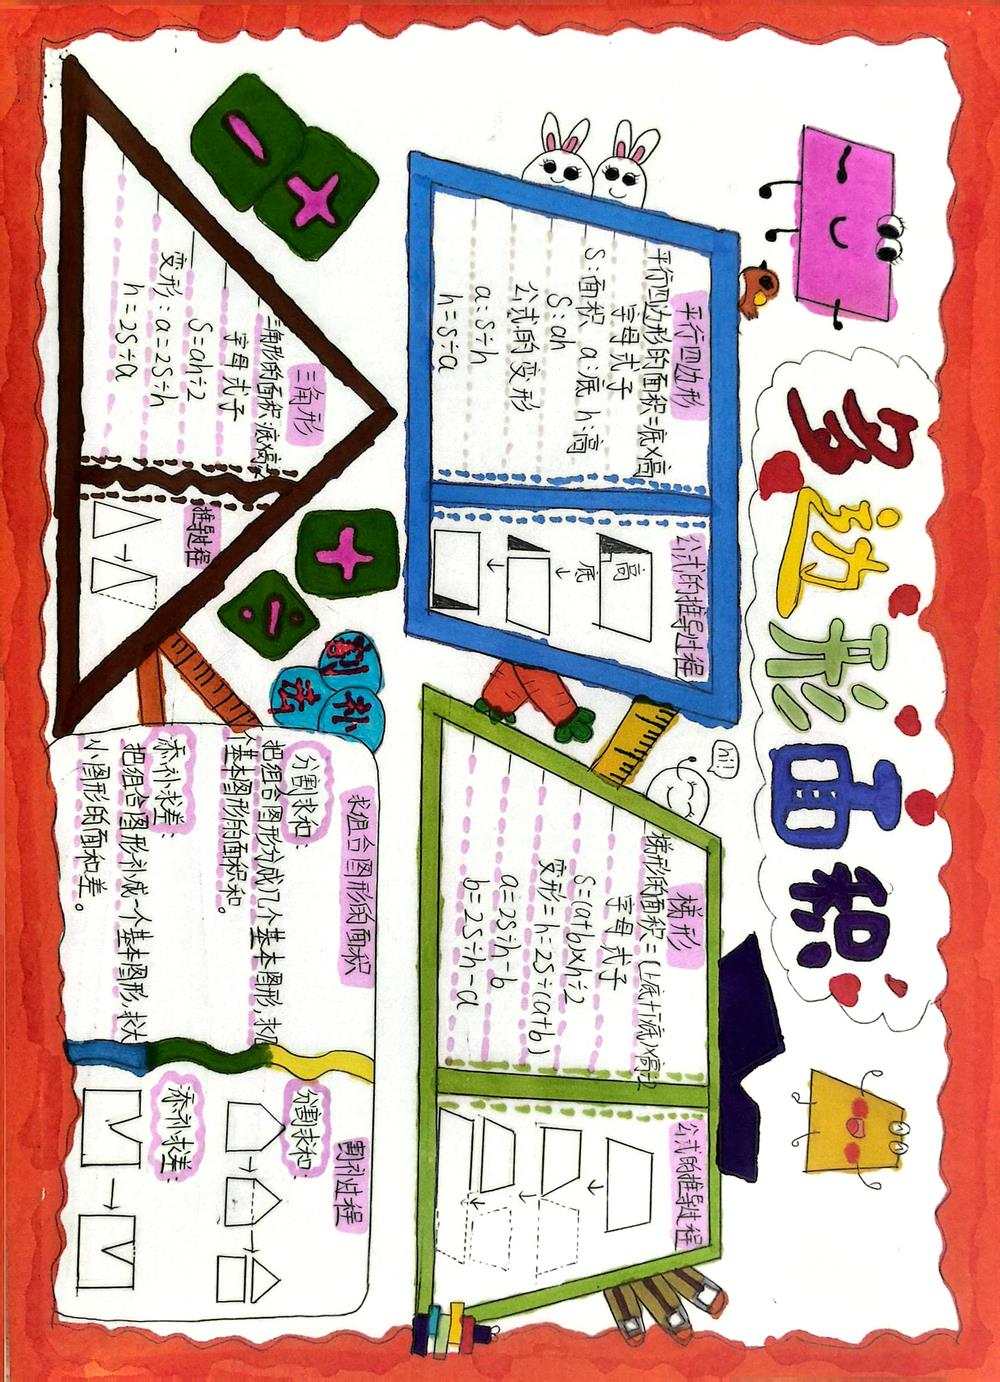 多边形面积
平行四边形
平行四边形的面积=底×高
字母式子
S:面积 a:底 h:高
S=ah
公式的变形
a=S÷h
h=S÷a
公式的推导过程
高
底
hi!
梯形
梯形的面积=(上底+下底)×高÷2
字母式子
S=(a+b)×h÷2
变形=h=2S÷(a+b)
a=2S÷h-b
b=2S÷h-a
公式的推导过程
三角形
三角形的面积:底×高
字母式子
S=ah÷2
变形:a=2S÷h
h=2S÷a
推导过程
割补法
求组合图形的面积
分割求和:
把组合图形分成几个基本图形,求几
个基本图形的面积和。
添补求差:
把组合图形补成一个基本图形,求大
小图形的面积差。
割补过程
分割求和:
添补求差: